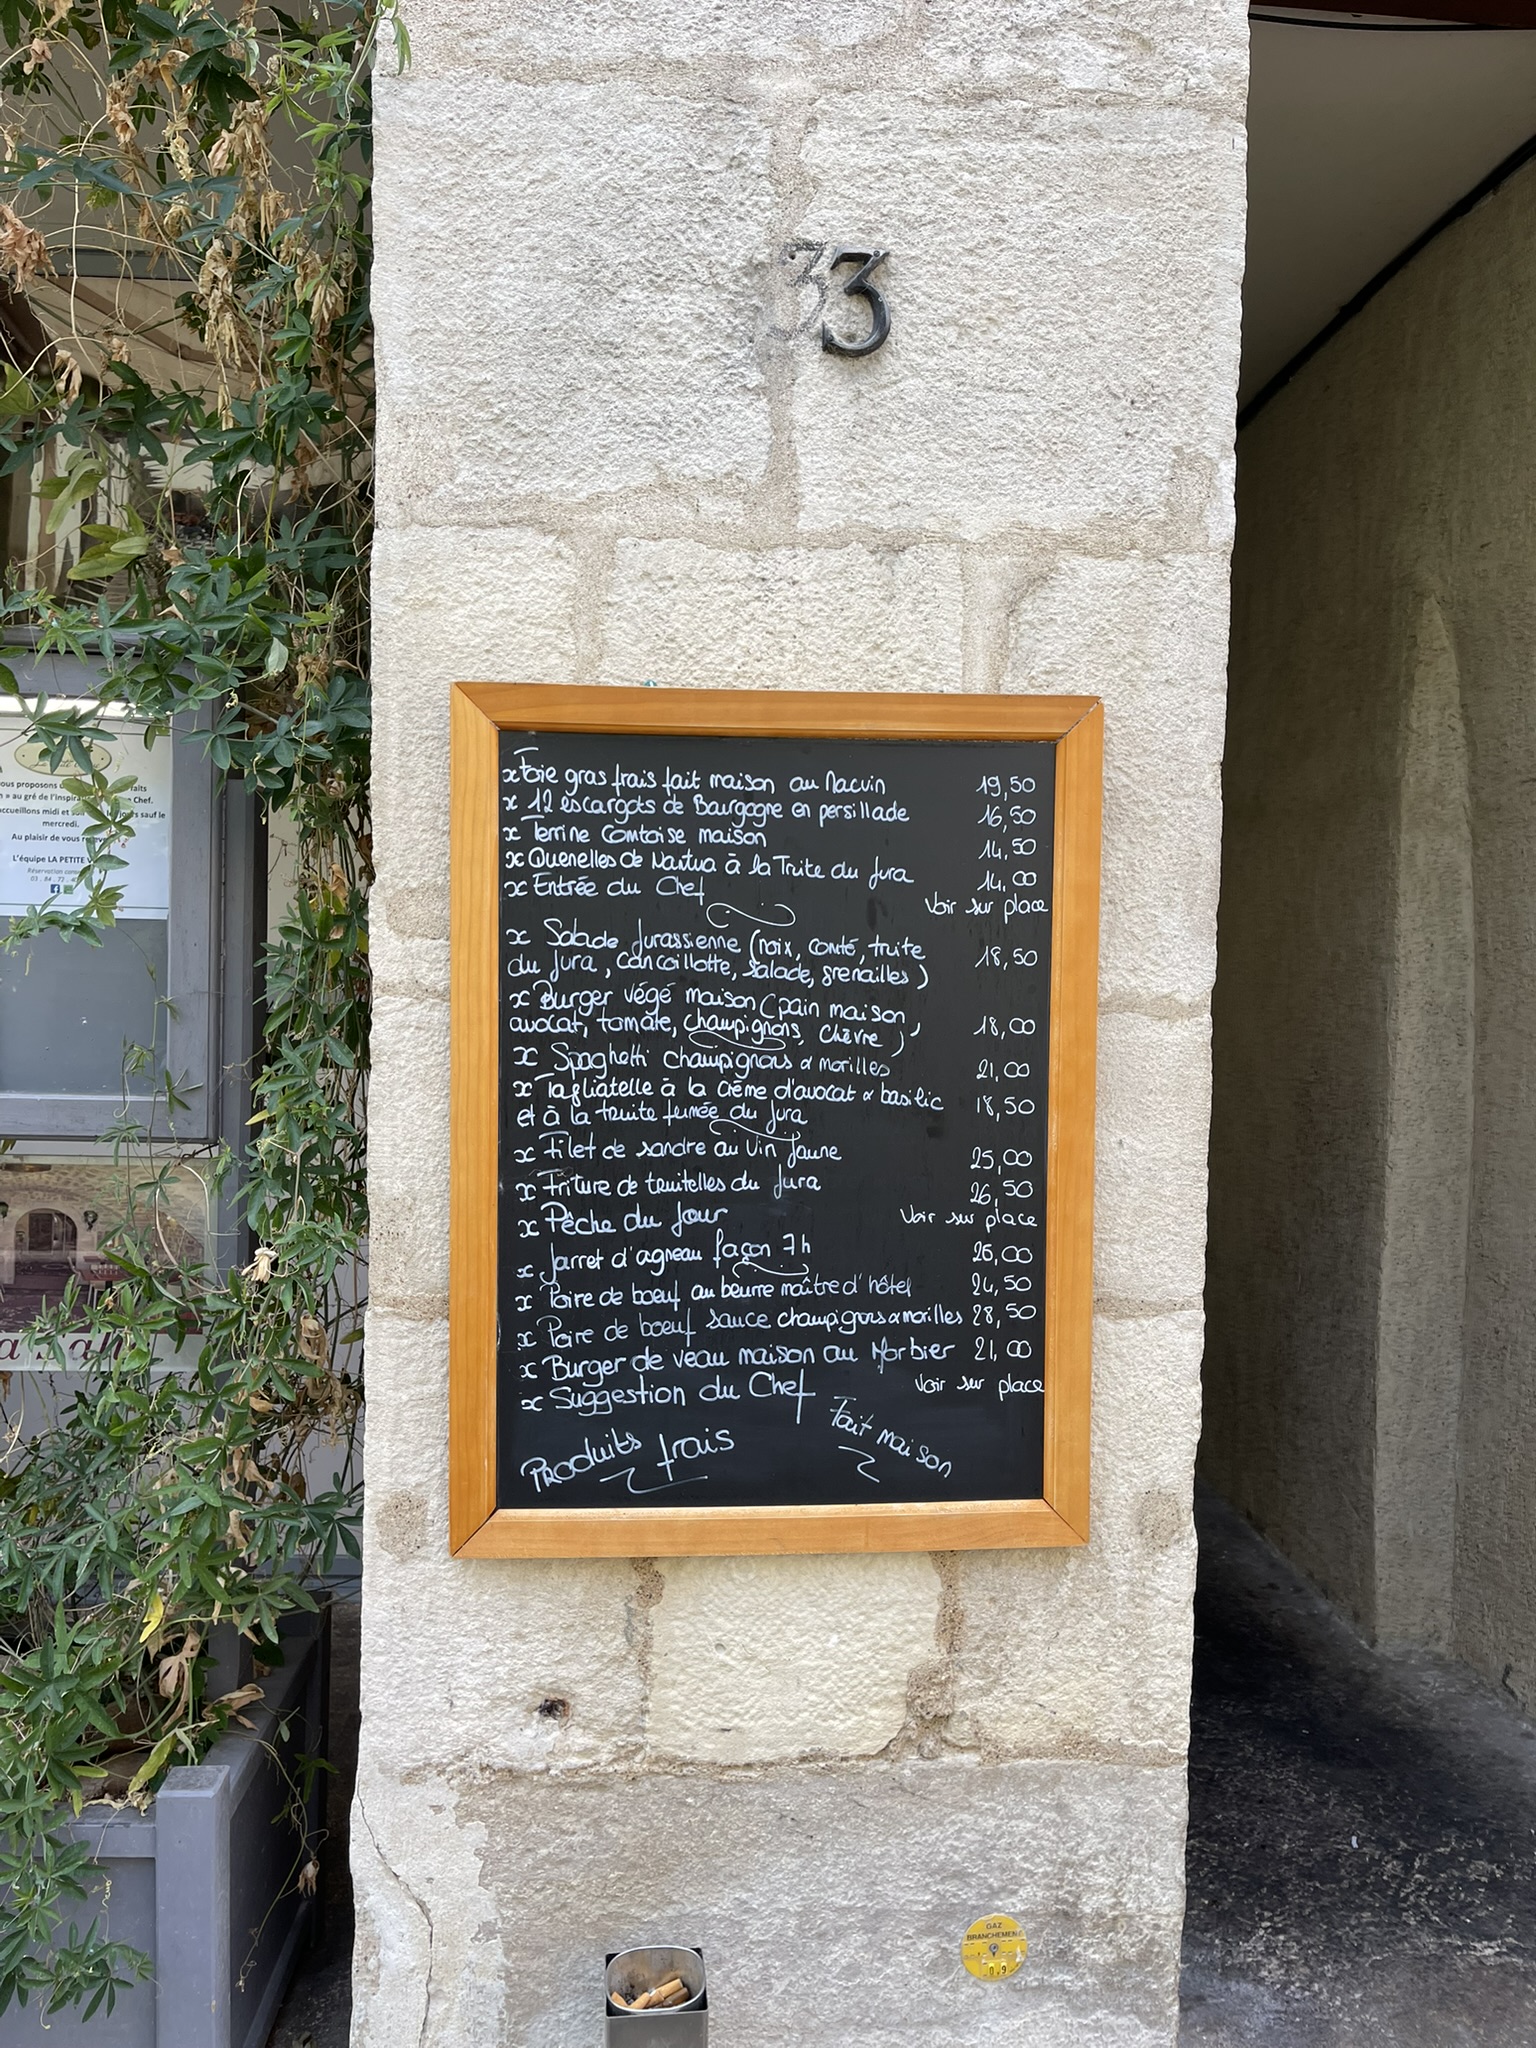 33
x Foie gras frais fait maison au Macvin 19,50
x 12 escargots de Bourgogne en persillade 16,50
x Terrine Comtoise maison 14,50
x Quenelles de Nantua à la Truite du Jura 14,00
x Entrée du Chef Voir sur place
x Salade Jurassienne (noix, comté, truite
du Jura, cancoillotte, salade, grenailles) 18,50
x Burger végé maison (pain maison,
avocat, tomate, champignons, chèvre) 18,00
x Spaghetti champignons & morilles 21,00
x Tagliatelle à la crème d'avocat & basilic
et à la truite fumée du Jura 18,50
x Filet de sandre au Vin Jaune 25,00
x Friture de truitelles du Jura 26,50
x Pêche du Jour Voir sur place
x Jarret d'agneau façon 7h 26,00
x Poire de boeuf au beurre maître d'hôtel 24,50
x Poire de boeuf sauce champignons & morilles 28,50
x Burger de veau maison au Morbier 21,00
x Suggestion du Chef Voir sur place
Produits frais
Fait maison
ous proposons
» au gré de l'Inspira Chef.
accueillons midi et jours sauf le
mercredi.
Au plaisir de vous
L'équipe LA PETITE
Réservation
03.84.73.
GAZ
BRANCHEMENT
0.9